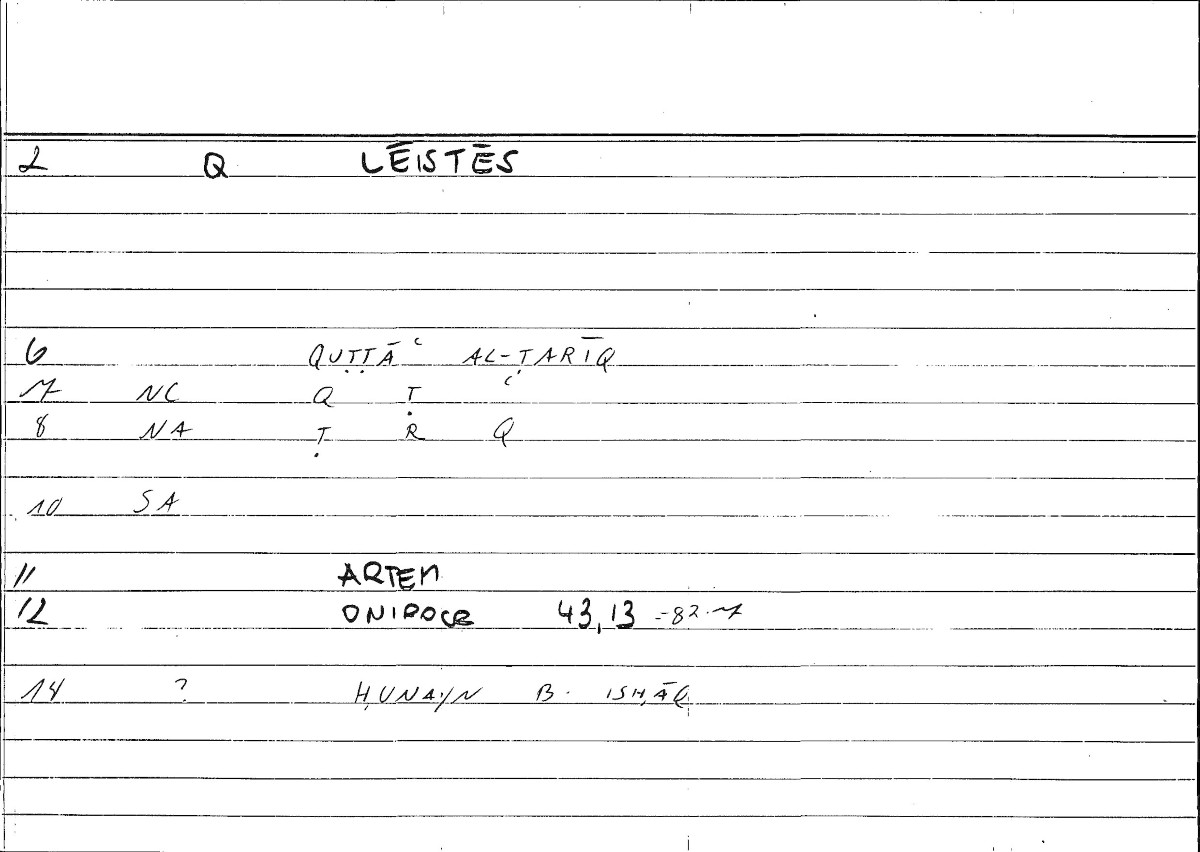 2 Q LĒISTĒS
6 QUṬṬĀʿ AL-ṬARĪQ
7 NC Q Ṭ ʿ
8 NA Ṭ R Q
10 SA
11 ARTEM
12 ONIROCR 43,13 -82.7
14 ? ḤUNAYN B. ISḤĀQ